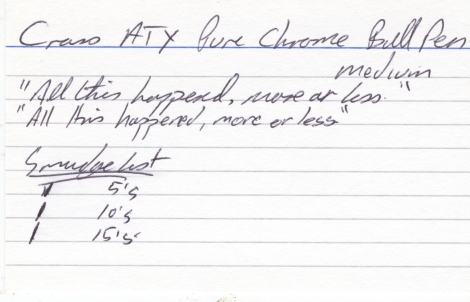 Cross ATX Pure Chrome Ball Pen
medium
"All this happened, more or less."
"All this happened, more or less"
Smudge test
5's
10's
15's